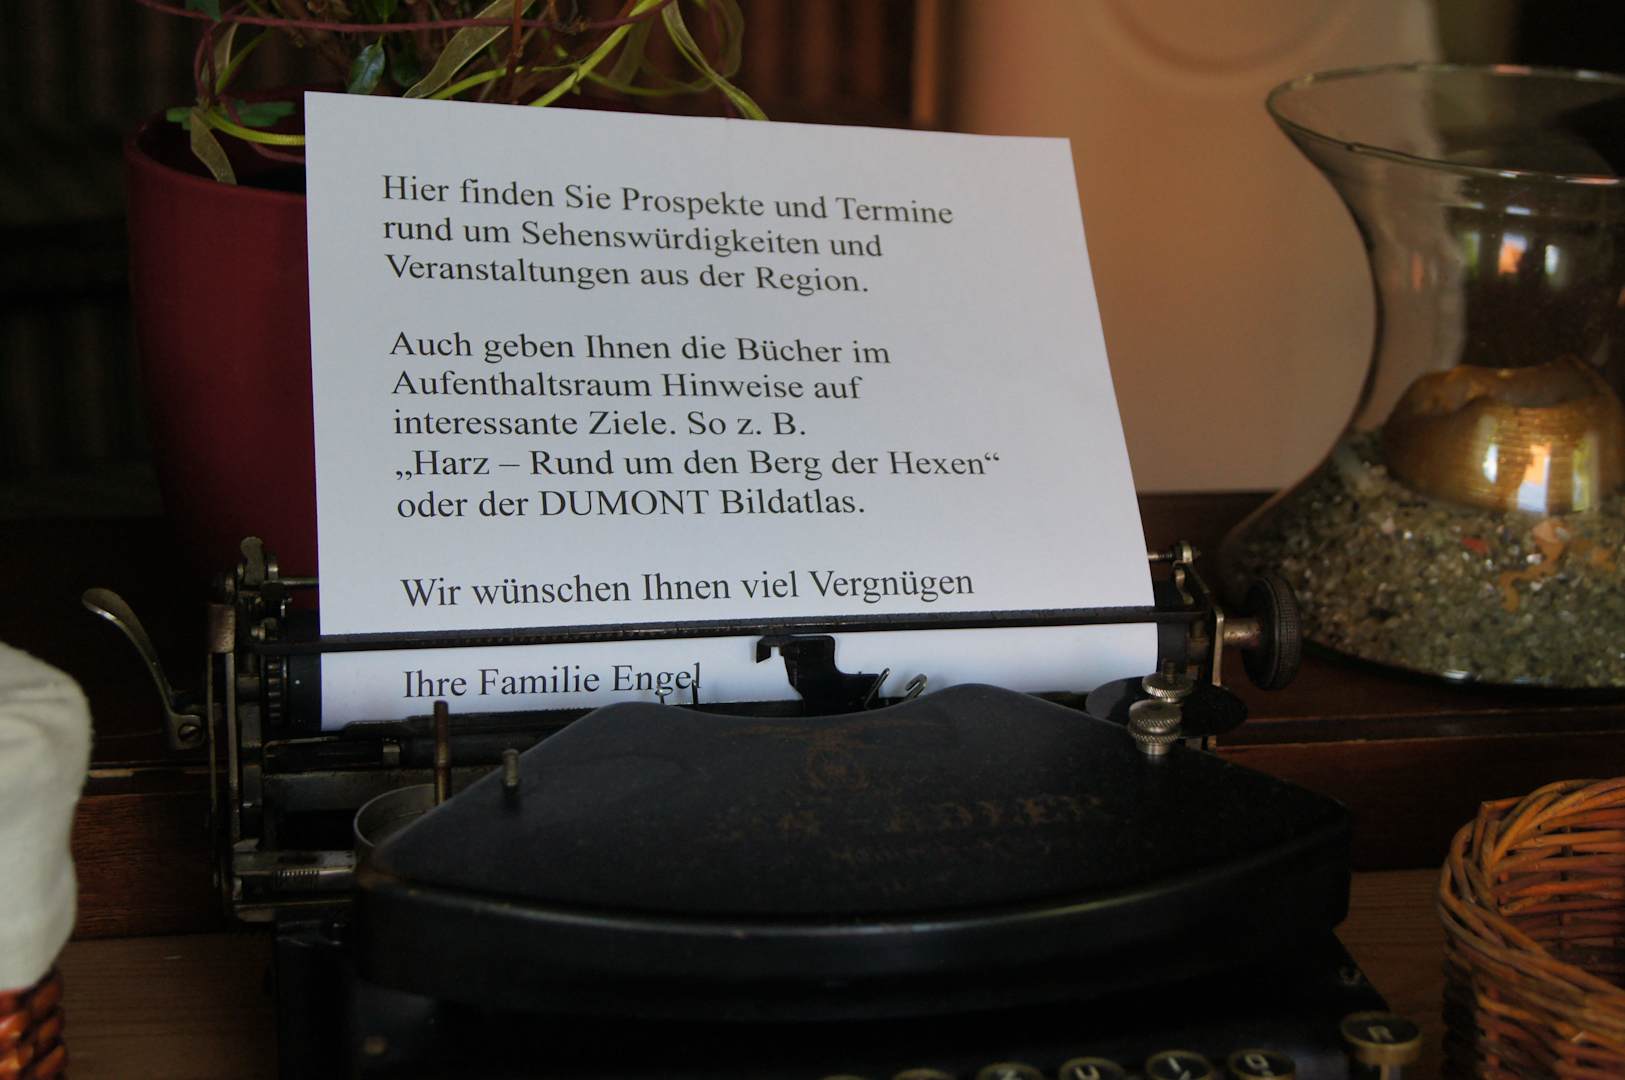 Hier finden Sie Prospekte und Termine
rund um Sehenswürdigkeiten und
Veranstaltungen aus der Region.
Auch geben Ihnen die Bücher im
Aufenthaltsraum Hinweise auf
interessante Ziele. So z. B.
„Harz – Rund um den Berg der Hexen“
oder der DUMONT Bildatlas.
Wir wünschen Ihnen viel Vergnügen
Ihre Familie Engel
Z U I O